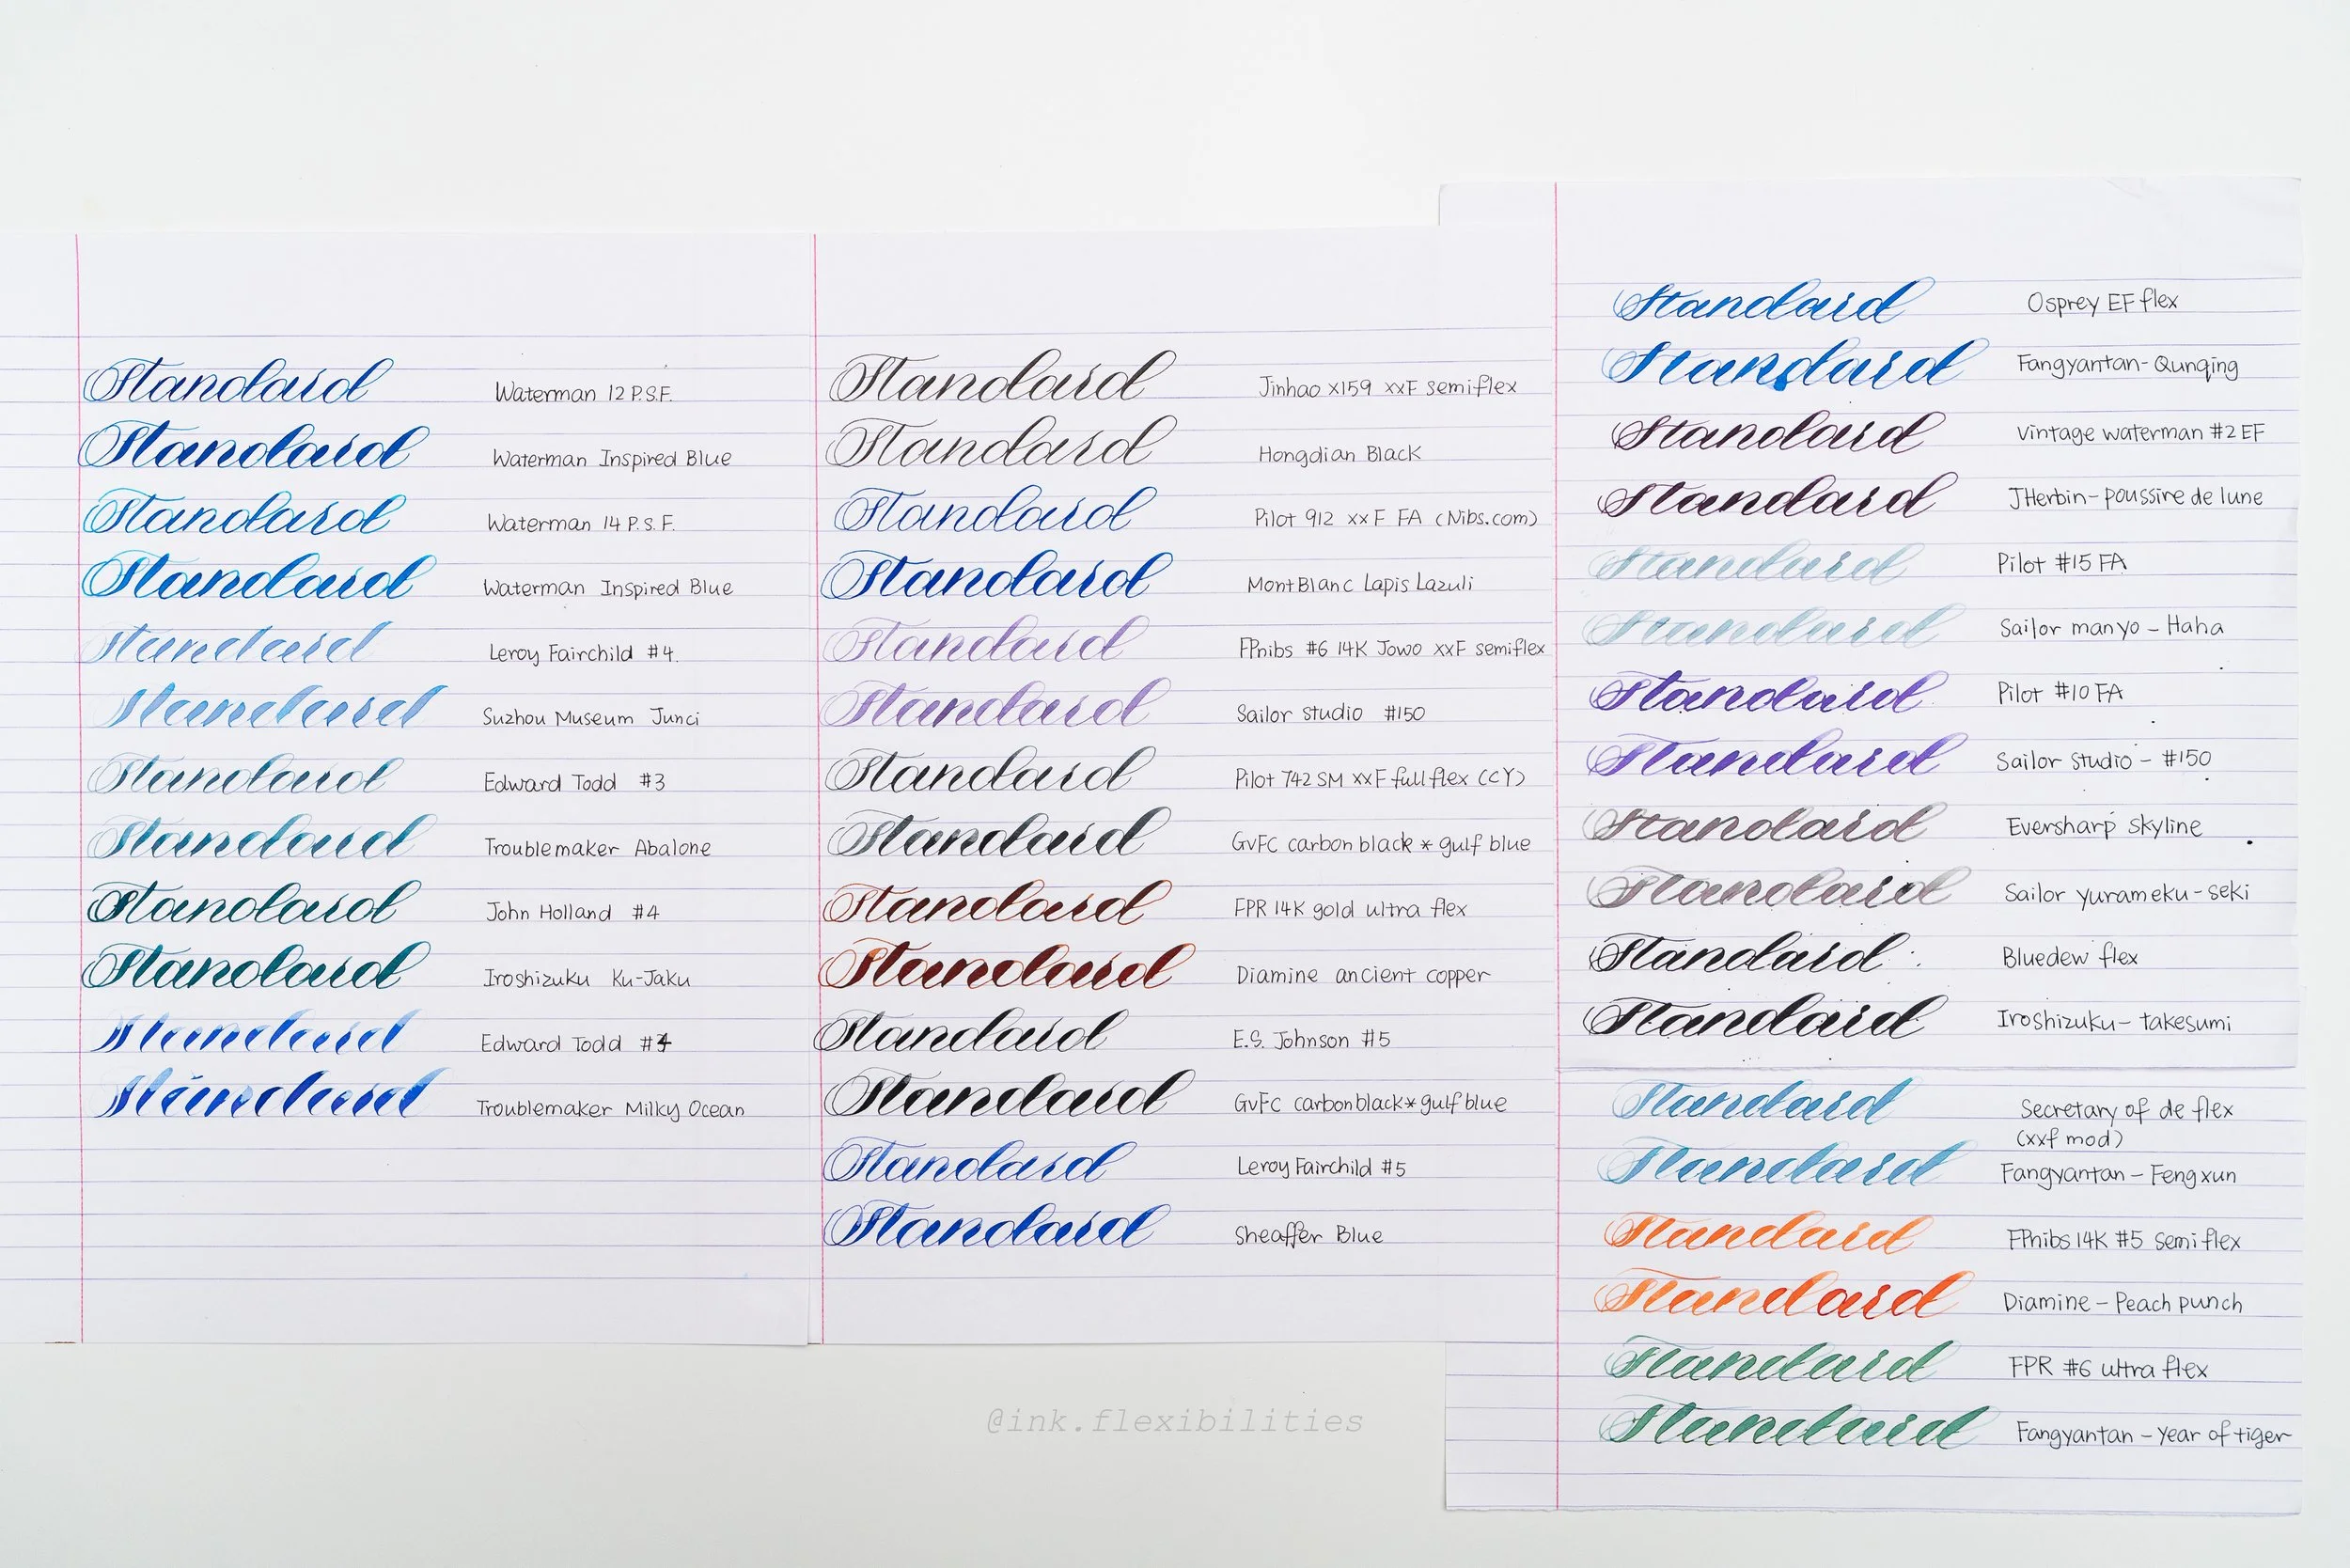 Standard Waterman 12 P.S.F.
Standard Waterman Inspired Blue
Standard Waterman 14 P.S.F.
Standard Waterman Inspired Blue
Standard Leroy Fairchild #4
Standard Suzhou Museum Junci
Standard Edward Todd #3
Standard Troublemaker Abalone
Standard John Holland #4
Standard Iroshizuku Ku-Jaku
Standard Edward Todd #4
Standard Troublemaker Milky Ocean
Standard Jinhao x159 xxF semiflex
Standard Hongdian Black
Standard Pilot 912 xxF FA (Nibs.com)
Standard MontBlanc Lapis Lazuli
Standard FPnibs #6 14K Jowo xxF semiflex
Standard Sailor studio #150
Standard Pilot 742 SM xxF full flex (CY)
Standard GvFC carbon black * gulf blue
Standard FPR 14K gold ultra flex
Standard Diamine ancient copper
Standard E.S. Johnson #5
Standard GvFC carbon black * gulf blue
Standard Leroy Fairchild #5
Standard Sheaffer Blue
Standard Osprey EF flex
Standard Fangyantan-Qunqing
Standard Vintage waterman #2 EF
Standard JHerbin-poussire de lune
Standard Pilot #15 FA
Standard Sailor manyo - Haha
Standard Pilot #10 FA
Standard Sailor studio - #150
Standard Eversharp skyline
Standard Sailor yurameku-seki
Standard Bluedew flex
Standard Iroshizuku-takesumi
Standard Secretary of de flex
(xxf mod)
Standard Fangyantan-Fengxun
Standard FPnibs 14K #5 semiflex
Standard Diamine - Peach punch
Standard FPR #6 ultra flex
Standard Fangyantan - year of tiger
@ink.flexibilities